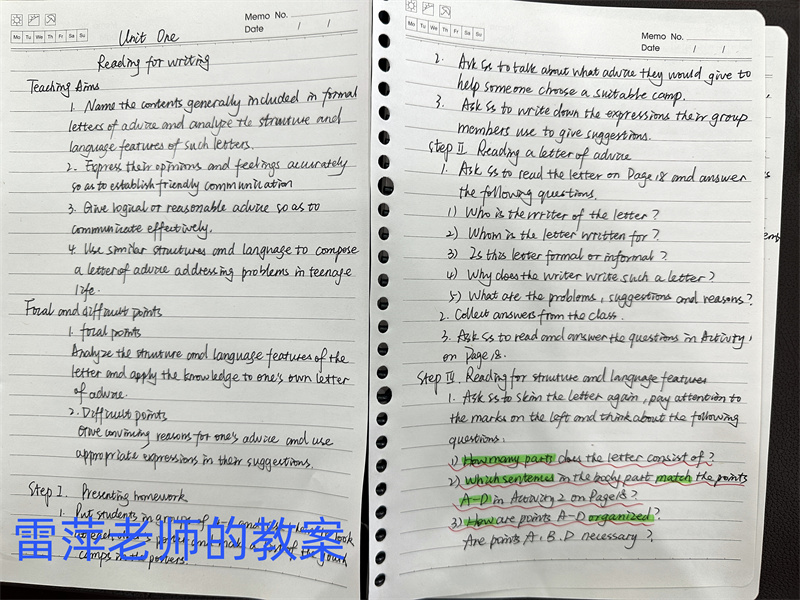 Memo No.
Mo Tu We Th Fr Sa Su
Date / /
Unit One
Reading for writing
Teaching Aims
1. Name the contents generally included in formal
letters of advice and analyze the structure and
language features of such letters.
2. Express their opinions and feelings accurately
so as to establish friendly communication
3. Give logical or reasonable advice so as to
communicate effectively.
4. Use similar structures and language to compose
a letter of advice addressing problems in teenage
life.
Focal and difficult points
1. focal points
Analyze the structure and language features of the
letter and apply the knowledge to one's own letter
of advice.
2. Difficult points
Give convincing reasons for one's advice and use
appropriate expressions in their suggestions.
Step I. Presenting homework
1. Put students in groups of
look
poster and make a list of the
camps in the posters.
雷萍老师的教案
Memo No.
Mo Tu We Th Fr Sa Su
Date / /
2. Ask Ss to talk about what advice they would give to
help someone choose a suitable camp.
3. Ask Ss to write down the expressions their group
members use to give suggestions.
Step II Reading a letter of advice
1. Ask Ss to read the letter on Page 18 and answer
the following questions.
1) Who is the writer of the letter?
2) Whom is the letter written for?
3) Is this letter formal or informal?
4) Why does the writer write such a letter?
5) What are the problems, suggestions and reasons?
2. Collect answers from the class.
3. Ask Ss to read and answer the questions in Activity 1
on Page 18.
Step III. Reading for structure and language features
1. Ask Ss to skim the letter again, pay attention to
the marks on the left and think about the following
questions.
1) How many parts does the letter consist of?
2) Which sentences in the body part match the points
A-D in Activity 2 on Page 18?
3) How are points A-D organized?
Are points A, B, D necessary?